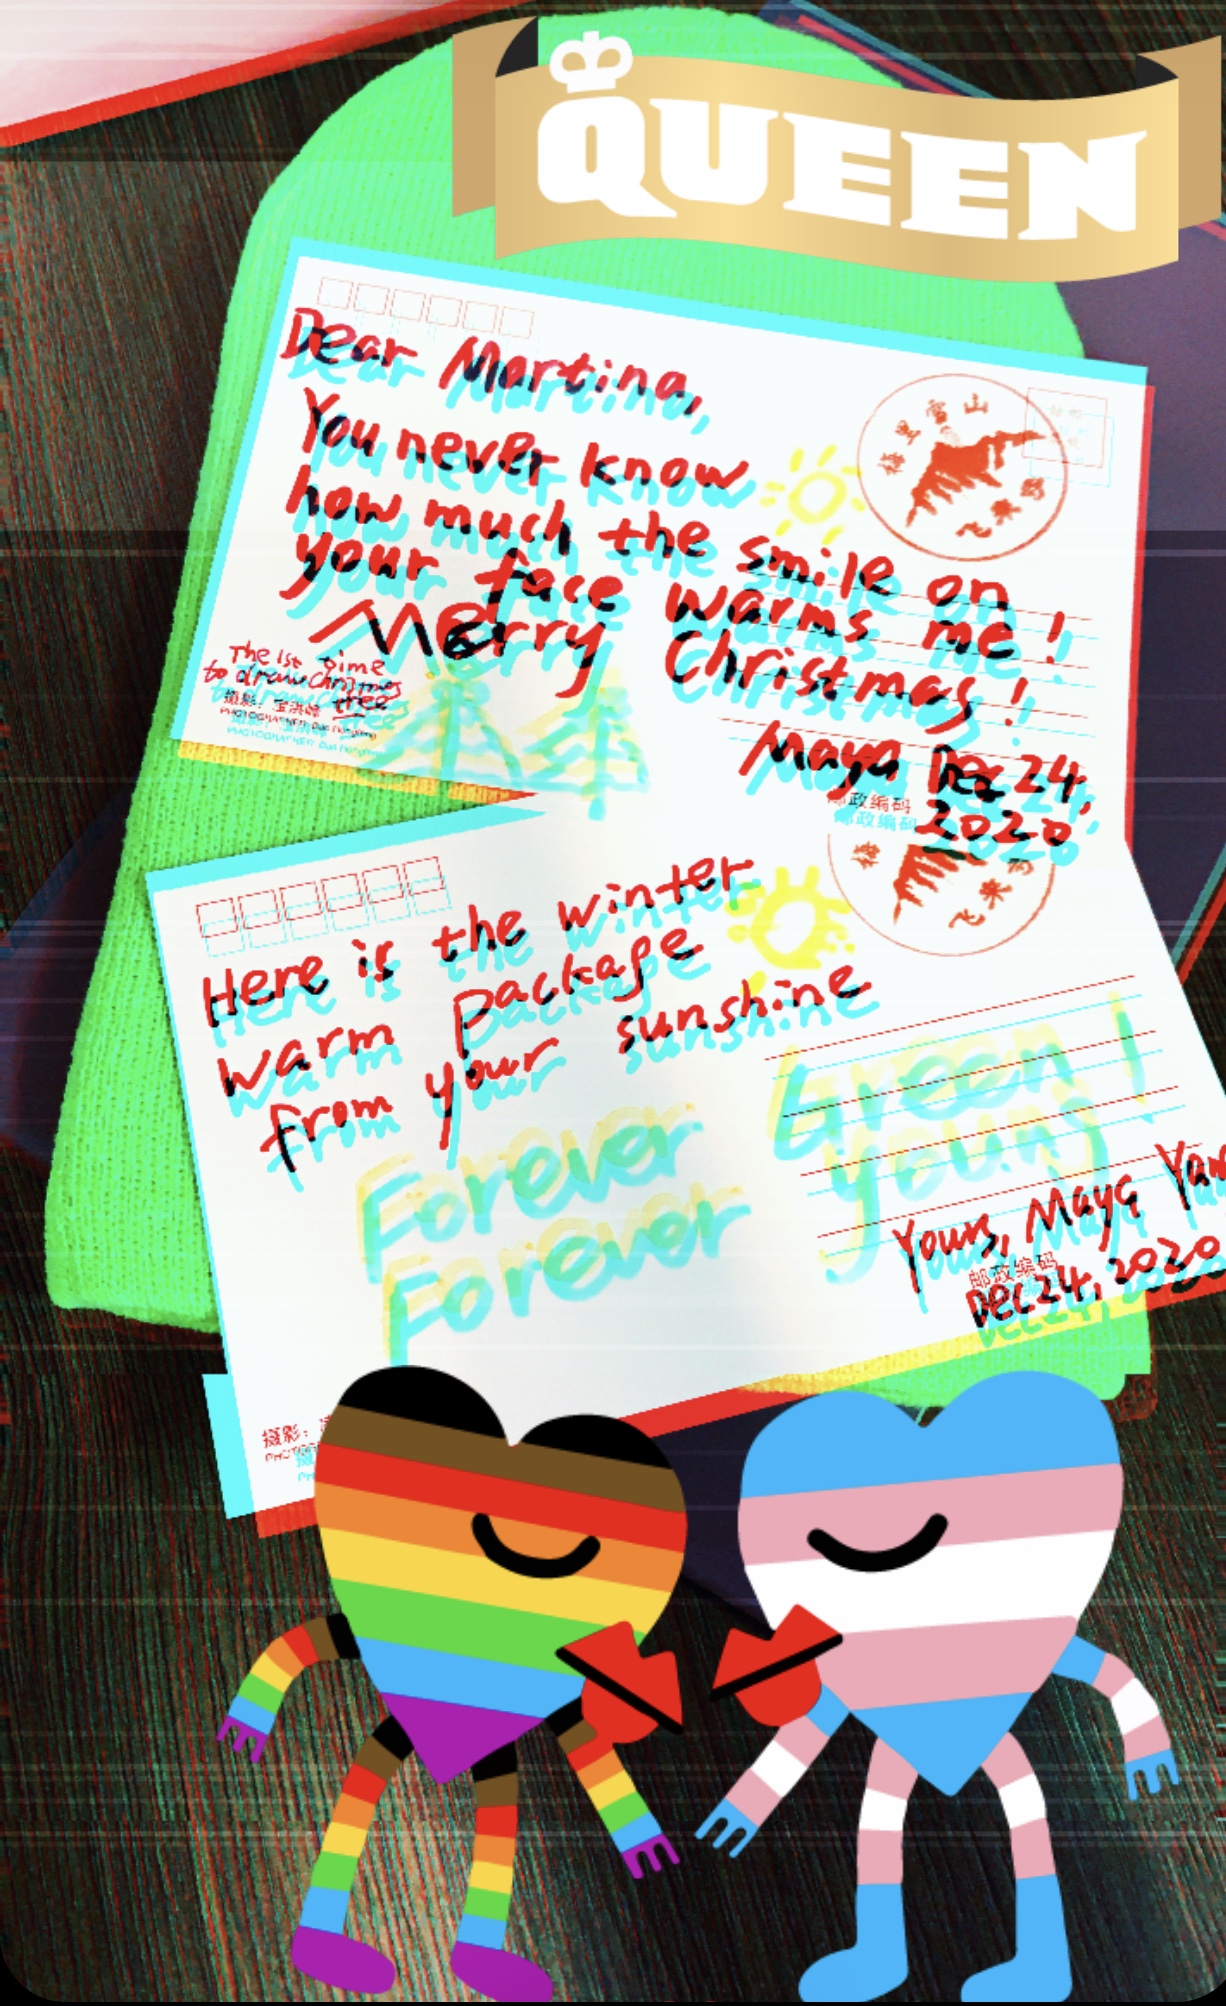 QUEEN
Dear Martina,
You never know
how much the smile on
your face warms me!
Merry Christmas!
The 1st time
to draw christmas
trees
摄影:
PHOTOGRAPHER:
Maya Dec 24,
2020
邮政编码
梅里雪山
飞来寺
Here is the winter
warm package
from your sunshine
Forever Green!
Forever young
Yours, Maya Yan
邮政编码
Dec 24, 2020
梅
飞来寺
摄影: